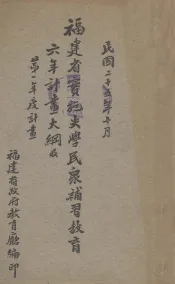 民國二十五年十月
福建省實施失學民衆補習教育
六年計畫大綱及
第一年度計畫
福建省政府教育廳編印